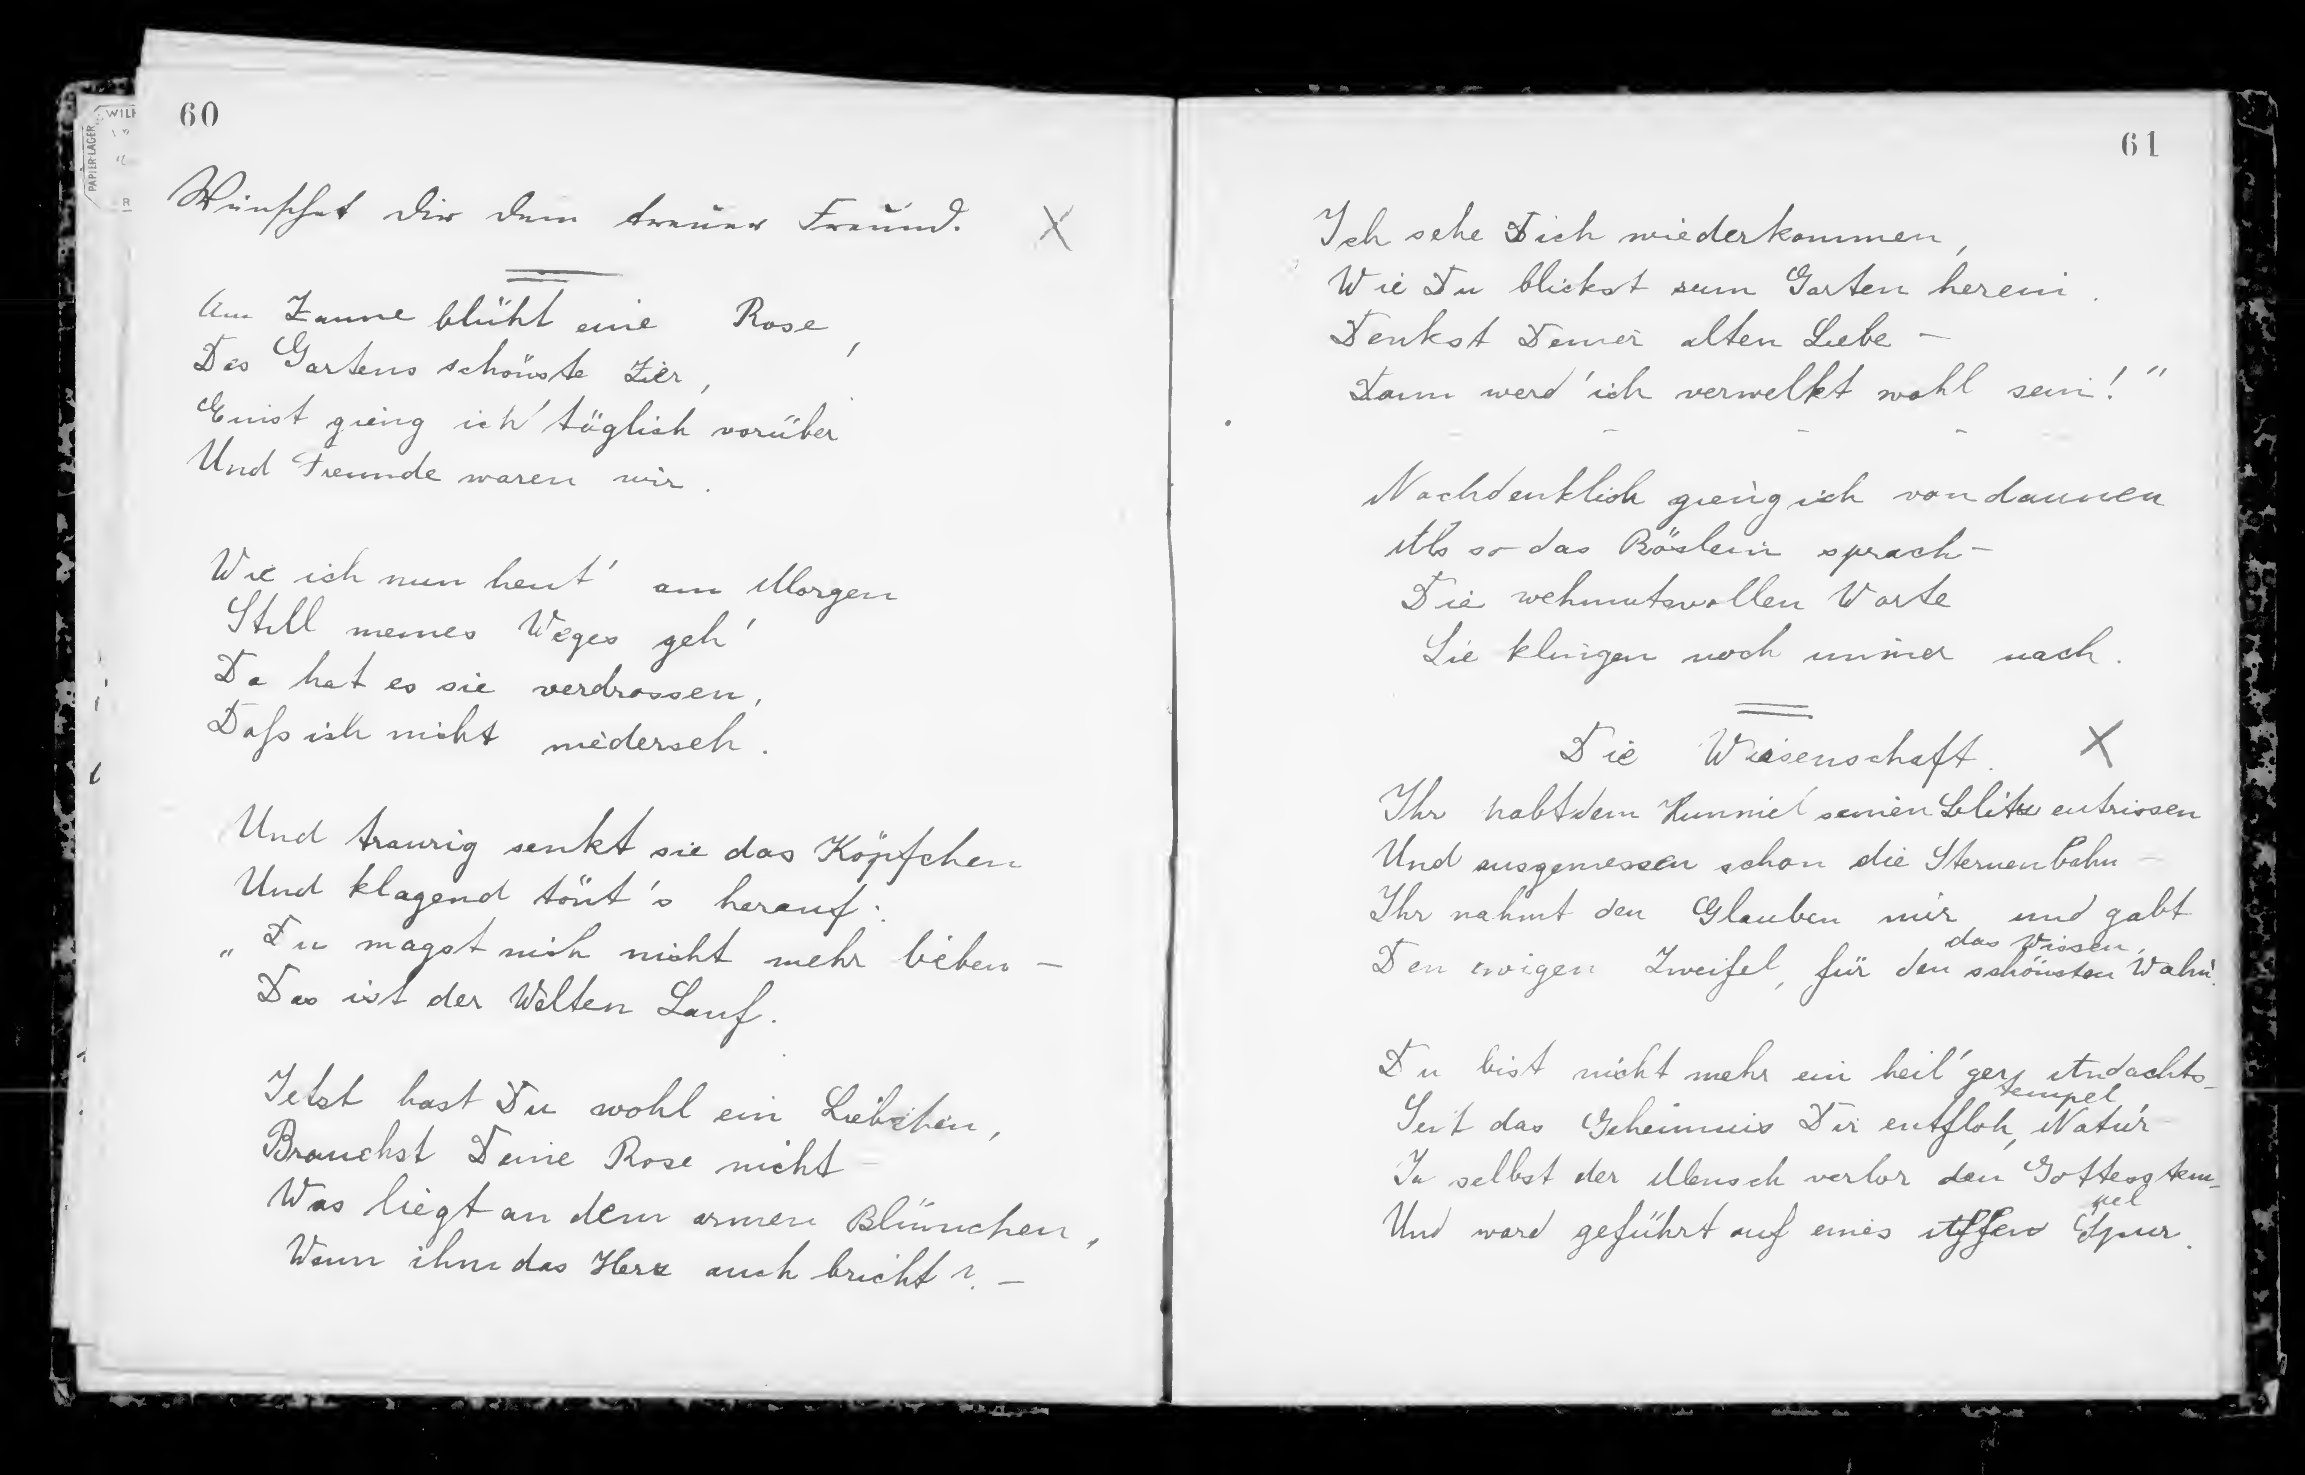 60
WILH
PAPIER-LAGER
R
Wünschet dir dein treuer Freund.
Am Zaune blüht eine Rose,
Des Gartens schönste Zier,
Einst gieng ich täglich vorüber
Und Freunde waren wir.
Wie ich nun heut' am Morgen
Still meines Weges geh'
Da hat es sie verdrossen,
Daß ich nicht niederseh.
Und traurig senkt sie das Köpfchen
Und klagend tönt's herauf:
„Du magst mich nicht mehr lieben –
Das ist der Welten Lauf.
Jetzt hast Du wohl ein Liebchen,
Brauchst Deine Rose nicht –
Was liegt an dem armen Blümchen,
Wenn ihm das Herz auch bricht? –
61
Ich sehe Dich wiederkommen,
Wie Du blickst zum Garten herein.
Denkst Deiner alten Liebe –
Dann werd' ich verwelkt wohl sein!"
Nachdenklich gieng ich von dannen
Als so das Röslein sprach –
Die wehmutsvollen Worte
Sie klingen noch immer nach.
Die Wissenschaft.
Ihr habt dem Himmel seinen Blitz entrissen
Und ausgemessen schon die Sternenbahn –
Ihr nahmt den Glauben mir und gabt
das Wissen,
Den ewigen Zweifel, für den schönsten Wahn.
Du bist nicht mehr ein heil'ger Andachts-
tempel
Seit das Geheimnis Dir entfloh, Natur –
Ja selbst der Mensch verlor den Gottesstem-
pel
Und ward geführt auf eines Affen Spur.